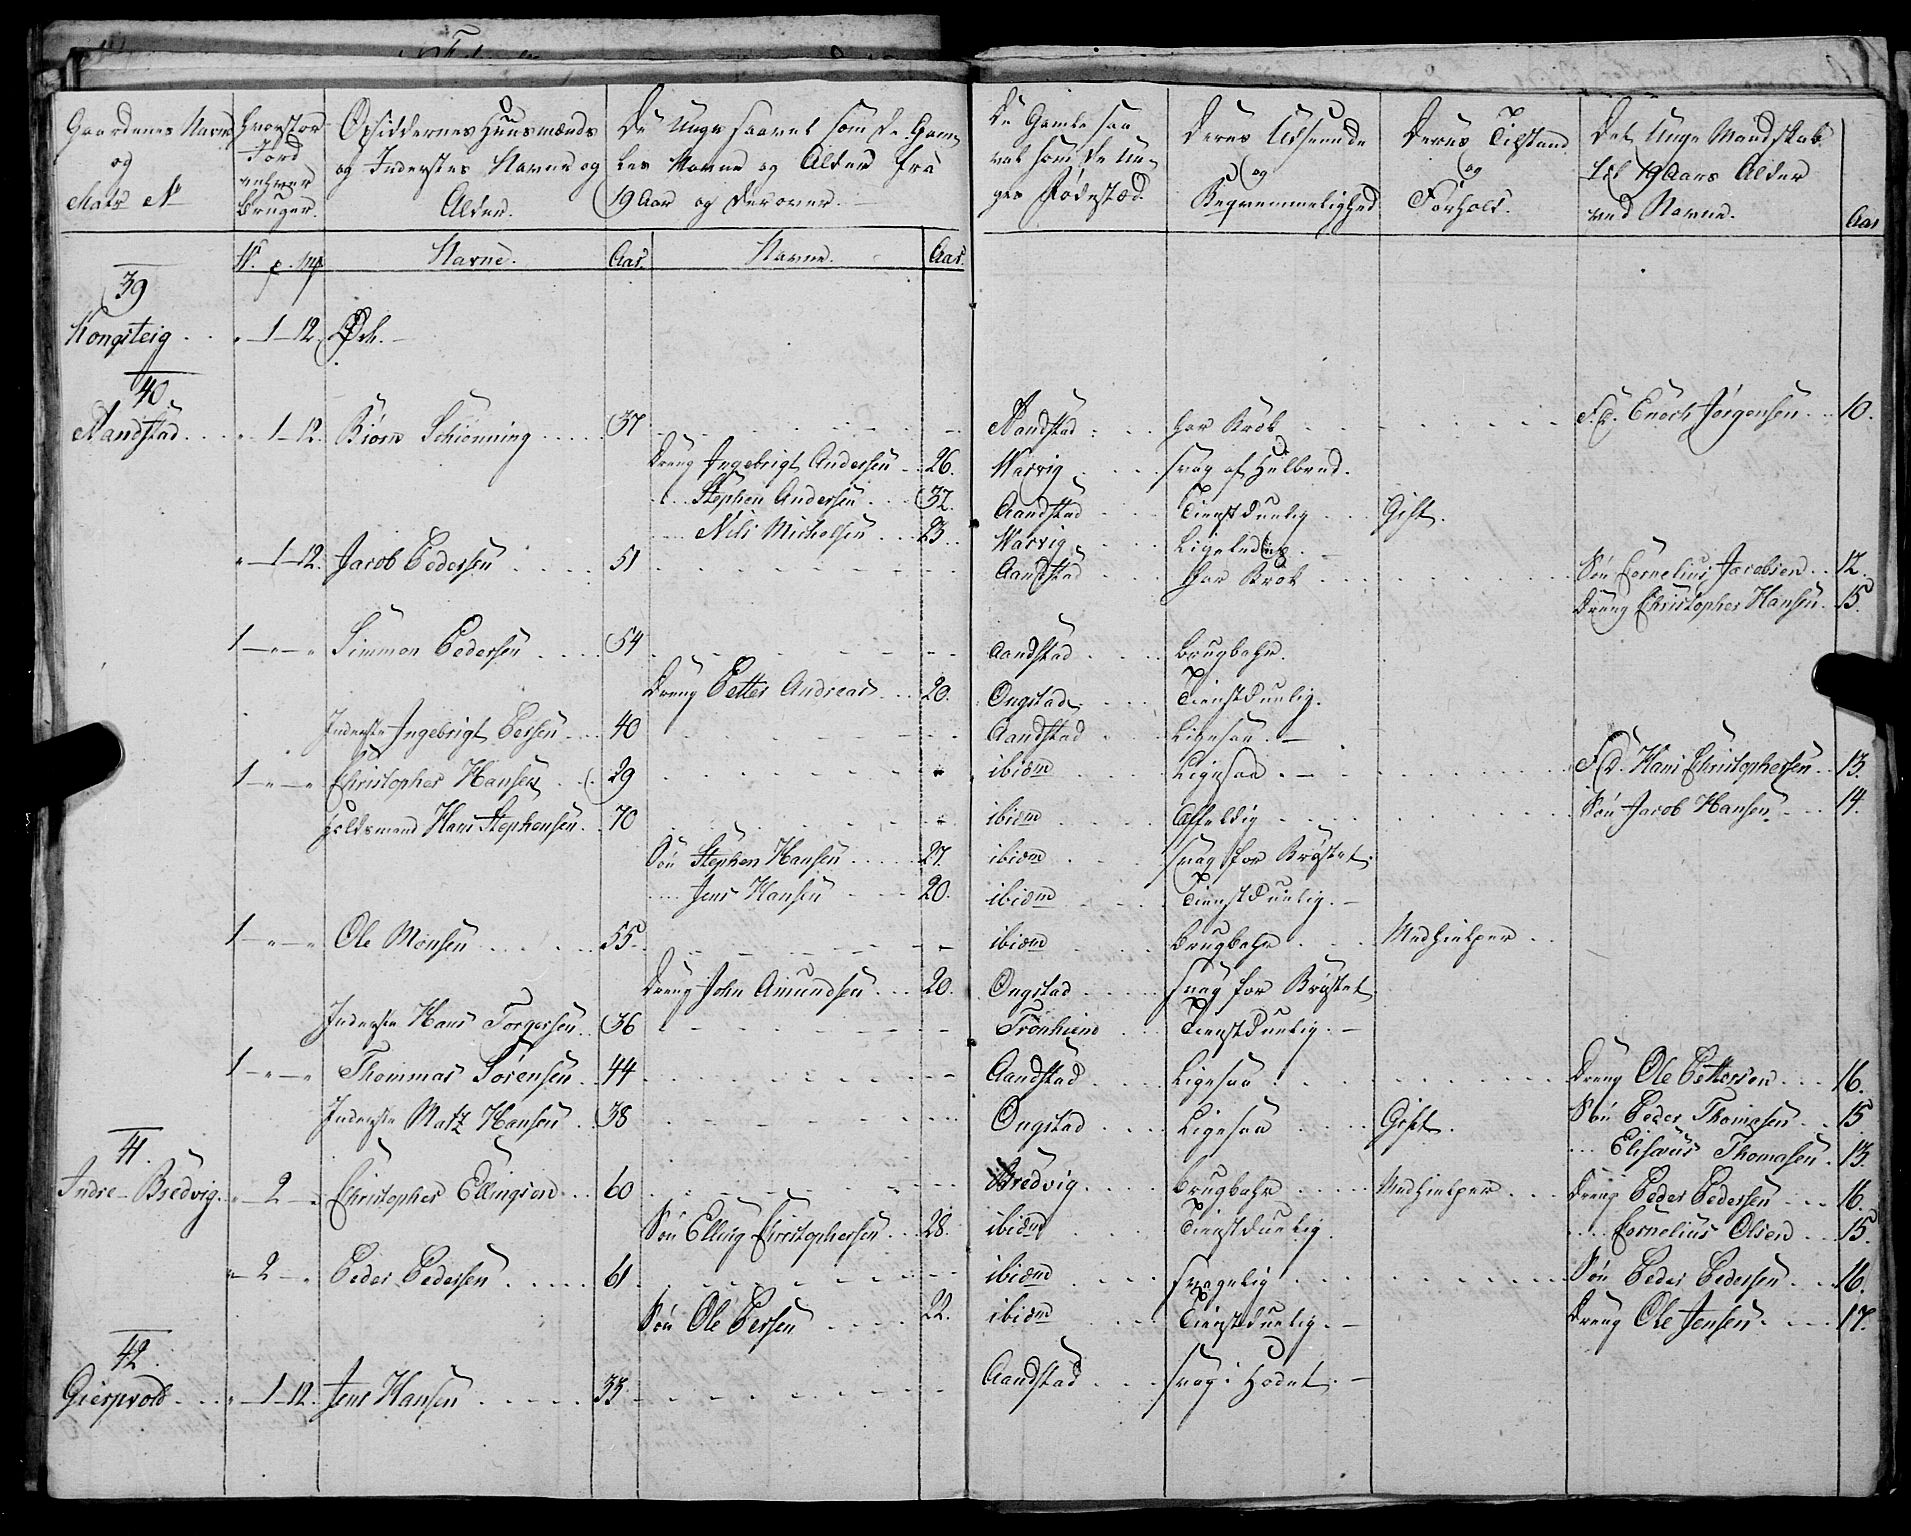 Gaardenes Navn og Matr. No
Hvorstor Jord enhver Bruger.
Opsiddernes Huusmænds og Inderstes Navne og Alder.
De Unge saavel som de Gamles Navne og Alder fra 19 Aar og derover.
De Gamle saavel som de Unges Fødested.
Deres Udseende og Beqvemmelighed
Deres Tilstand og Forhold.
Det Unge Mandskab til 19 Aars Alder ved Navne.
Aar
V. p. mk Navne. Aar. Navne. Aar.
39
Kongsteig . . " 1 12 Øde.
40
Aandstad . . . " 1 12. Biørn Schiønning . . . . 37 Aandstad . . har Brok F.d. Enoch Jørgensen . . 10.
Dreng Ingebrigt Andersen . . 26. Warvig . . . svag af Helbred.
. . . Stephen Andersen . . . 32. Aandstad . . . Tienstduelig . . . Gift.
. . . Nils Michelsen . . . 23. Warvig . . . Ligeledes
" 1 12. Jacob Pedersen . . . . 51 Aandstad . . . har Brok . . . Søn Cornelius Jacobsen . . 12.
Dreng Christopher Hansen . 15.
1 " " Simmon Pedersen . . . . 54 Aandstad . . . brugbahr.
Dreng Petter Andreas . . . 20. Ongstad . . . Tienstduelig.
Inderste Ingebrigt Persen . . . 40 Aandstad . . Ligesaa.
1 " " Christopher Hansen . . . 29 ibidem Ligesaa . . . F.d. Hans Christophersen . . 13.
Holdsmand Hans Stephensen . . 70 ibidem . . . Affeldig . . . Søn Jacob Hansen . . . 14.
Søn Stephen Hansen . . . . 27. ibidem . . . svag for Brøstet.
. . . Jens Hansen . . . 20. ibidem . . . Tienstduelig.
1 " " Ole Monsen . . . . 55. ibidem . . . brugbahr . . . Medhielper . .
Dreng John Amundsen . . . 20. Ongstad . . . svag for Brøstet.
Inderste Hans Torgersen . . 36 Tronhiem . . Tienstduelig.
1 " " Thommas Sørensen . . 44 Aandstad . . . Ligesaa . . . Dreng Ole Pettersen . . . 16.
Inderste Matz Hansen . . 38 Ongstad . . . Ligesaa . . . Gift. Søn Peder Thomasen . . 15
. . . Elisæus Thomasen . 13.
41.
Indre Bredvig . . " 2 " Christopher Ellingsen . . . 60 Bredvig . . . brugbahr . . . Medhielper . . . Dreng Peder Pedersen . . . 16.
Søn Elling Christophersen . . 28. ibidem . . . Tienstduelig. . . . Cornelius Olsen . . . 15.
" 2 " Peder Pedersen . . . . 61 ibidem . . . svagelig . . . Søn Peder Pedersen . . . 16.
Søn Ole Persen . . . . 22. ibidem . . . Tienstduelig. Dreng Ole Jensen . . . 17.
42.
Giersvold . . . " 1 12. Jens Hansen . . . . 33 Aandstad . . . svag i Hodet.